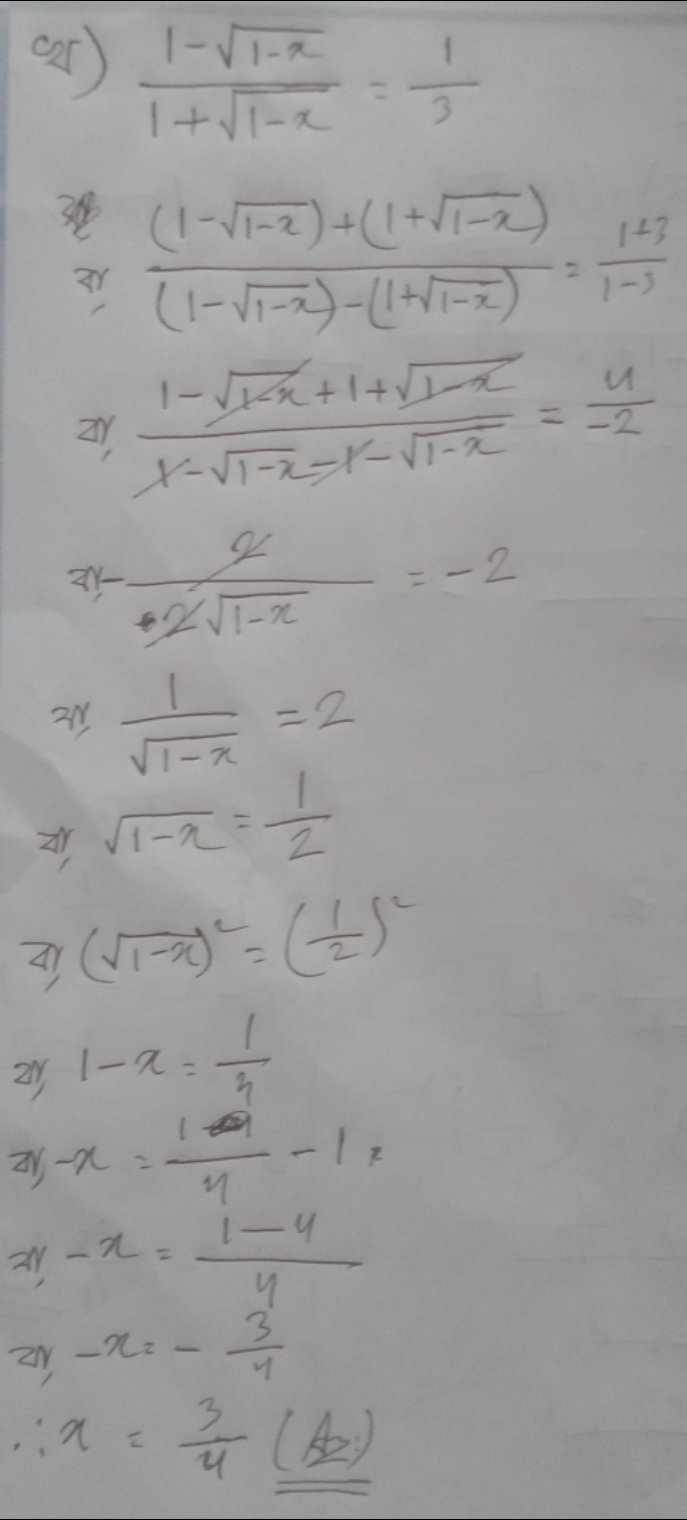 খ) (1-√(1-x))/(1+√(1-x)) = 1/3
বা, ((1-√(1-x))+(1+√(1-x)))/((1-√(1-x))-(1+√(1-x))) = (1+3)/(1-3)
বা, (1-√(1-x)+1+√(1-x))/(1-√(1-x)-1-√(1-x)) = 4/-2
বা, - 2/(2√(1-x)) = -2
বা, 1/√(1-x) = 2
বা, √(1-x) = 1/2
বা, (√(1-x))² = (1/2)²
বা, 1-x = 1/4
বা, -x = 1/4 - 1
বা, -x = (1-4)/4
বা, -x = - 3/4
∴ x = 3/4 (Ans:)